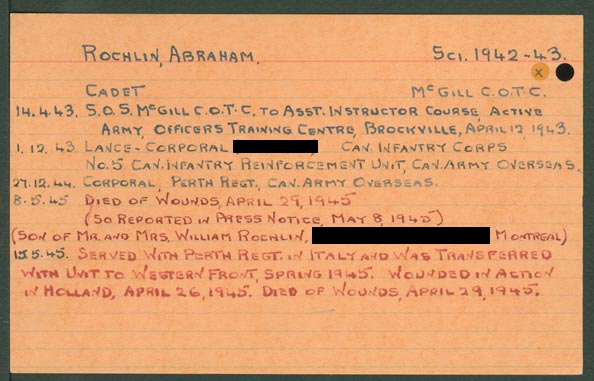 ROCHLIN, ABRAHAM. SCI. 1942-43.
X
CADET MCGILL C.O.T.C.
14.4.43. S.O.S. MCGILL C.O.T.C. TO ASST. INSTRUCTOR COURSE, ACTIVE
ARMY, OFFICERS TRAINING CENTRE, BROCKVILLE, APRIL 12, 1943.
1.12.43. LANCE-CORPORAL CAN. INFANTRY CORPS
NO. 5 CAN. INFANTRY REINFORCEMENT UNIT, CAN. ARMY OVERSEAS.
27.12.44. CORPORAL, PERTH REGT., CAN. ARMY OVERSEAS.
8.5.45 DIED OF WOUNDS, APRIL 29, 1945
(SO REPORTED IN PRESS NOTICE, MAY 8, 1945)
(SON OF MR. AND MRS. WILLIAM ROCHLIN, MONTREAL)
15.5.45. SERVED WITH PERTH REGT. IN ITALY AND WAS TRANSFERRED
WITH UNIT TO WESTERN FRONT, SPRING 1945. WOUNDED IN ACTION
IN HOLLAND, APRIL 26, 1945. DIED OF WOUNDS, APRIL 29, 1945.